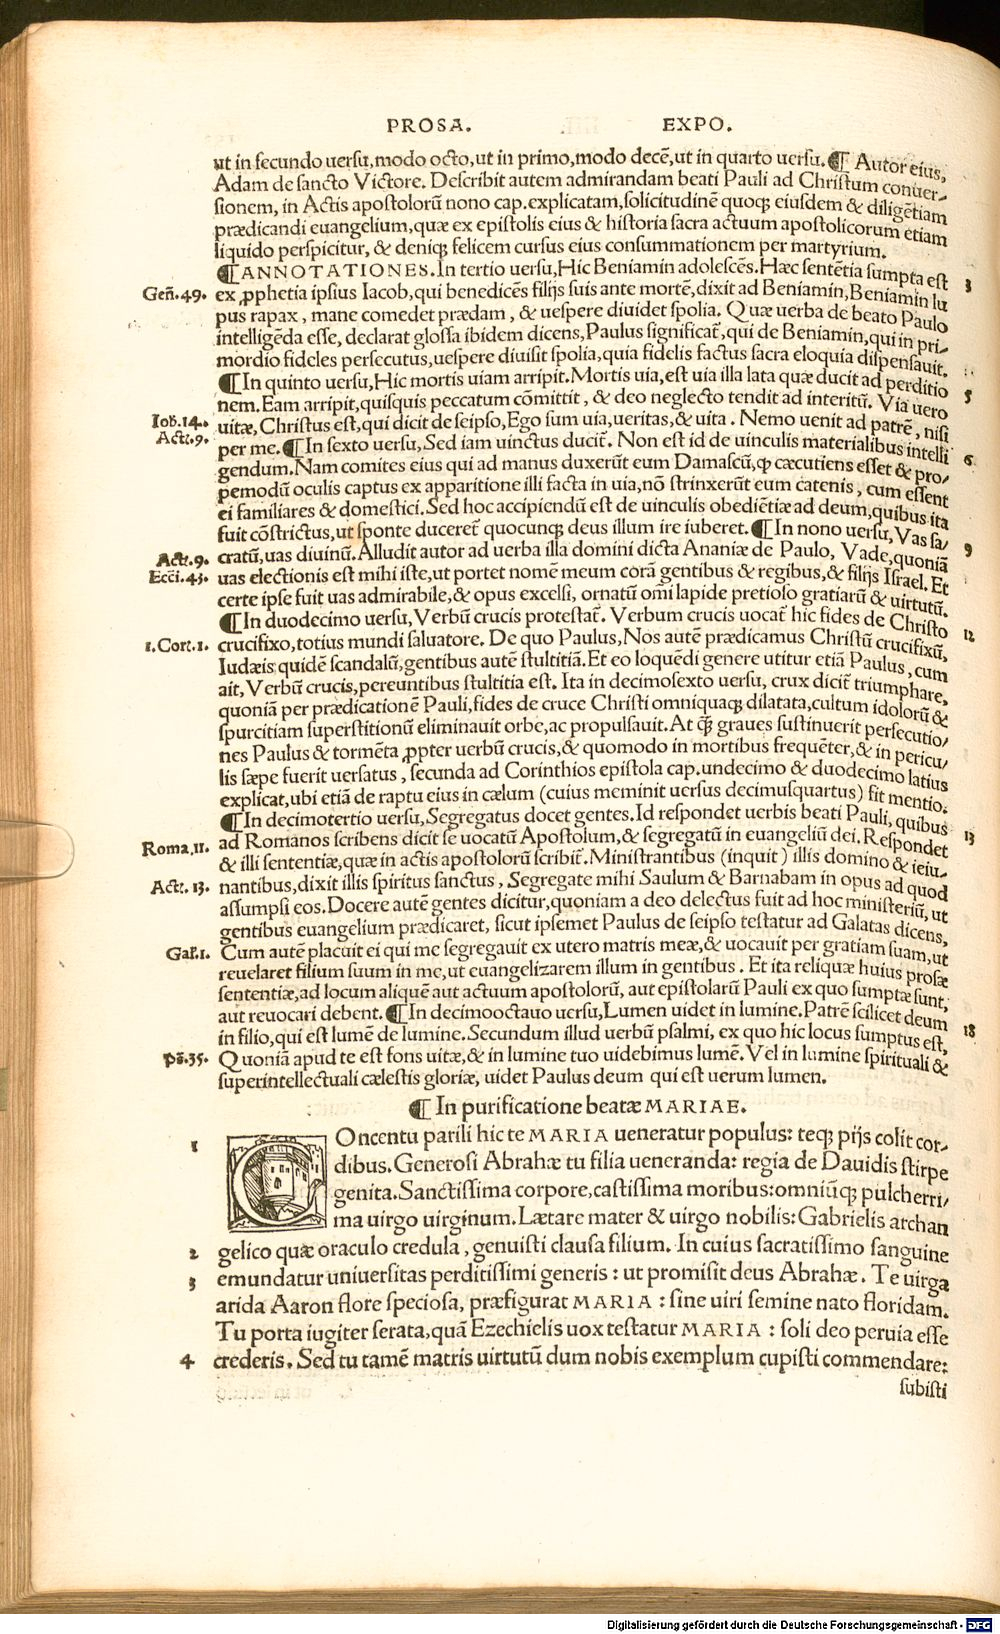 PROSA. EXPO.
ut in secundo uersu,modo octo,ut in primo,modo decē,ut in quarto uersu.¶ Autor eius,
Adam de sancto Victore. Describit autem admirandam beati Pauli ad Christum conuer-
sionem, in Actis apostolorū nono cap.explicatam,solicitudinē quoqꝫ eiusdem & diligētiam
prædicandi euangelium,quæ ex epistolis eius & historia sacra actuum apostolicorum etiam
liquido perspicitur, & deniqꝫ felicem cursus eius consummationem per martyrium.
¶ANNOTATIONES.In tertio uersu,Hic Beniamin adolescēs.Hæc sentētia sumpta est 3
Geñ.49. ex ꝓphetia ipsius Iacob,qui benedicēs filijs suis ante mortē,dixit ad Beniamin,Beniamin lu
pus rapax, mane comedet prædam, & uespere diuidet spolia. Quæ uerba de beato Paulo
intelligēda esse, declarat glossa ibidem dicens,Paulus significat̃,qui de Beniamin,qui in pri-
mordio fideles persecutus,uespere diuisit spolia,quia fidelis factus sacra eloquia dispensauit.
¶In quinto uersu,Hic mortis uiam arripit.Mortis uia,est uia illa lata quæ ducit ad perditio 5
nem.Eam arripit,quisquis peccatum cōmittit, & deo neglecto tendit ad interitū. Via uero
Ioh̃.14. uitæ,Christus est,qui dicit de seipso,Ego sum uia,ueritas,& uita. Nemo uenit ad patrē, nisi
Act̃.9. per me.¶In sexto uersu,Sed iam uinctus ducit̃. Non est id de uinculis materialibus intelli 6
gendum.Nam comites eius qui ad manus duxerūt eum Damascū,ꝙ cæcutiens esset & pro-
pemodū oculis captus ex apparitione illi facta in uia,nō strinxerūt eum catenis, cum essent
ei familiares & domestici.Sed hoc accipiendū est de uinculis obediētiæ ad deum,quibus ita
fuit cōstrictus,ut sponte duceret̃ quocunqꝫ deus illum ire iuberet.¶In nono uersu,Vas sa- 9
Act̃.9. cratū,uas diuinū.Alludit autor ad uerba illa domini dicta Ananiæ de Paulo, Vade,quoniā
Ecci.43. uas electionis est mihi iste,ut portet nomē meum corā gentibus & regibus,& filijs Israel. Et
certe ipse fuit uas admirabile,& opus excelsi, ornatū omi lapide pretioso gratiarū & uirtutū.
¶In duodecimo uersu,Verbū crucis protestat̃. Verbum crucis uocat̃ hic fides de Christo 12
1.Cort.1. crucifixo,totius mundi saluatore. De quo Paulus,Nos autē prædicamus Christū crucifixū,
Iudæis quidē scandalū,gentibus autē stultitiā.Et eo loquēdi genere utitur etiā Paulus, cum
ait, Verbū crucis,pereuntibus stultitia est. Ita in decimosexto uersu, crux dicit̃ triumphare,
quoniā per prædicationē Pauli,fides de cruce Christi omniquaqꝫ dilatata,cultum idolorū &
spurcitiam superstitionū eliminauit orbe,ac propulsauit.At ꝙ̃ graues sustinuerit persecutio-
nes Paulus & tormēta ꝓpter uerbū crucis,& quomodo in mortibus frequēter,& in pericu-
lis sæpe fuerit uersatus, secunda ad Corinthios epistola cap.undecimo & duodecimo latius
explicat,ubi etiā de raptu eius in cælum (cuius meminit uersus decimusquartus) fit mentio.
¶In decimotertio uersu,Segregatus docet gentes.Id respondet uerbis beati Pauli, quibus 13
Roma.11. ad Romanos scribens dicit se uocatū Apostolum,& segregatū in euangeliū dei. Respondet
& illi sententiæ,quæ in actis apostolorū scribit̃.Ministrantibus (inquit) illis domino & ieiu-
Act̃. 13. nantibus,dixit illis spiritus sanctus, Segregate mihi Saulum & Barnabam in opus ad quod
assumpsi eos.Docere autē gentes dicitur,quoniam a deo delectus fuit ad hoc ministeriū, ut
gentibus euangelium prædicaret, sicut ipsemet Paulus de seipso testatur ad Galatas dicens,
Gal̃.1. Cum autē placuit ei qui me segregauit ex utero matris meæ,& uocauit per gratiam suam,ut
reuelaret filium suum in me,ut euangelizarem illum in gentibus. Et ita reliquæ huius prosæ
sententiæ,ad locum aliquē aut actuum apostolorū, aut epistolarū Pauli ex quo sumptæ sunt,
aut reuocari debent.¶In decimooctauo uersu,Lumen uidet in lumine.Patrē scilicet deum
in filio,qui est lumē de lumine.Secundum illud uerbū psalmi, ex quo hic locus sumptus est, 18
Ps̃.35. Quoniā apud te est fons uitæ,& in lumine tuo uidebimus lumē. Vel in lumine spirituali &
superintellectuali cælestis gloriæ, uidet Paulus deum qui est uerum lumen.
¶ In purificatione beatæ MARIAE.
1 COncentu parili hic te MARIA ueneratur populus: teqꝫ pijs colit cor-
dibus.Generosi Abrahæ tu filia ueneranda: regia de Dauidis stirpe
genita.Sanctissima corpore,castissima moribus:omniūqꝫ pulcherri-
ma uirgo uirginum.Lætare mater & uirgo nobilis:Gabrielis archan
2 gelico quæ oraculo credula, genuisti clausa filium. In cuius sacratissimo sanguine
3 emundatur uniuersitas perditissimi generis: ut promisit deus Abrahæ. Te uirga
arida Aaron flore speciosa, præfigurat MARIA: sine uiri semine nato floridam.
Tu porta iugiter serata,quā Ezechielis uox testatur MARIA: soli deo peruia esse
4 crederis. Sed tu tamē matris uirtutū dum nobis exemplum cupisti commendare:
subisti
Digitalisierung gefördert durch die Deutsche Forschungsgemeinschaft - DFG